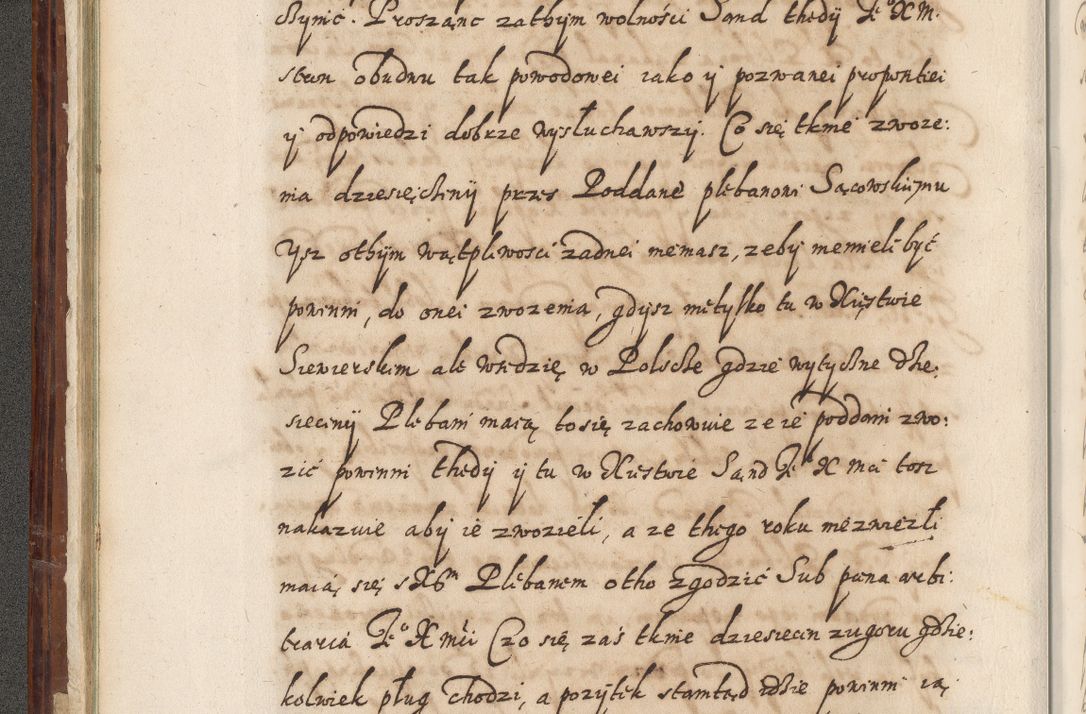 czynić. Proszanc zathym wolności Sand thedy Je° X M.
stron obudwu tak powodowei iako y pozwanei propontiei
y odpowiedzi dobrze wysłuchawszy. Co się tknie zwoze:
nia dziesięchiny przes Poddane plebanowi Sącowskiemu
Ysz othym wątpliwosci zadnei niemasz, zeby niemieli być
powinni, do onei zwozenia, gdysz nietylko tu w Xięstwie
Siewierskim ale wszdzię w Polscze gdzie wytyczne dzie:
sieciny Plebani maią to się zachowuie ze ie poddani zwo:
zić powinni thedy y tu w Xięstwie Sand Je° X Mci tosz
nakazuie aby ie zwozieli, a ze thego roku niezwiezłi
maią się s X6m Plebanem otho zgodzić Sub pœna arbi:
traria Je° X Mci Czo się zaś tknie dziesiecin zugoru gdzie:
kolwiek pług chodzi, a pozytek stamtąd idzie powinni ią